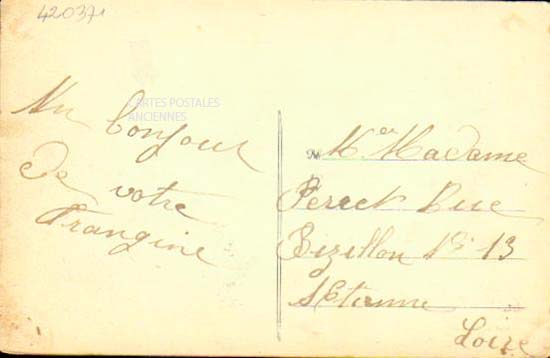 420371
CARTES POSTALES
ANCIENNES
Un bonjour
de votre
Frangine
M. et Madame
Perret Rue
Bizillon N° 13
St Etienne
Loire